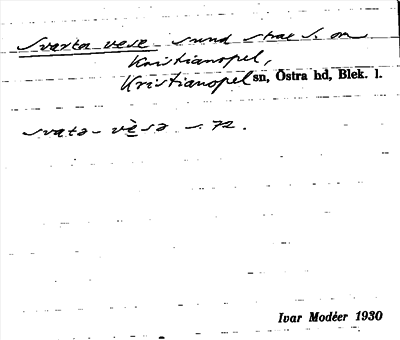 Svarta vese sund strax S. om
Kristianopel,
Kristianopel sn, Östra hd, Blek. l.
svata- vèsa s. 72.
Ivar Modéer 1930